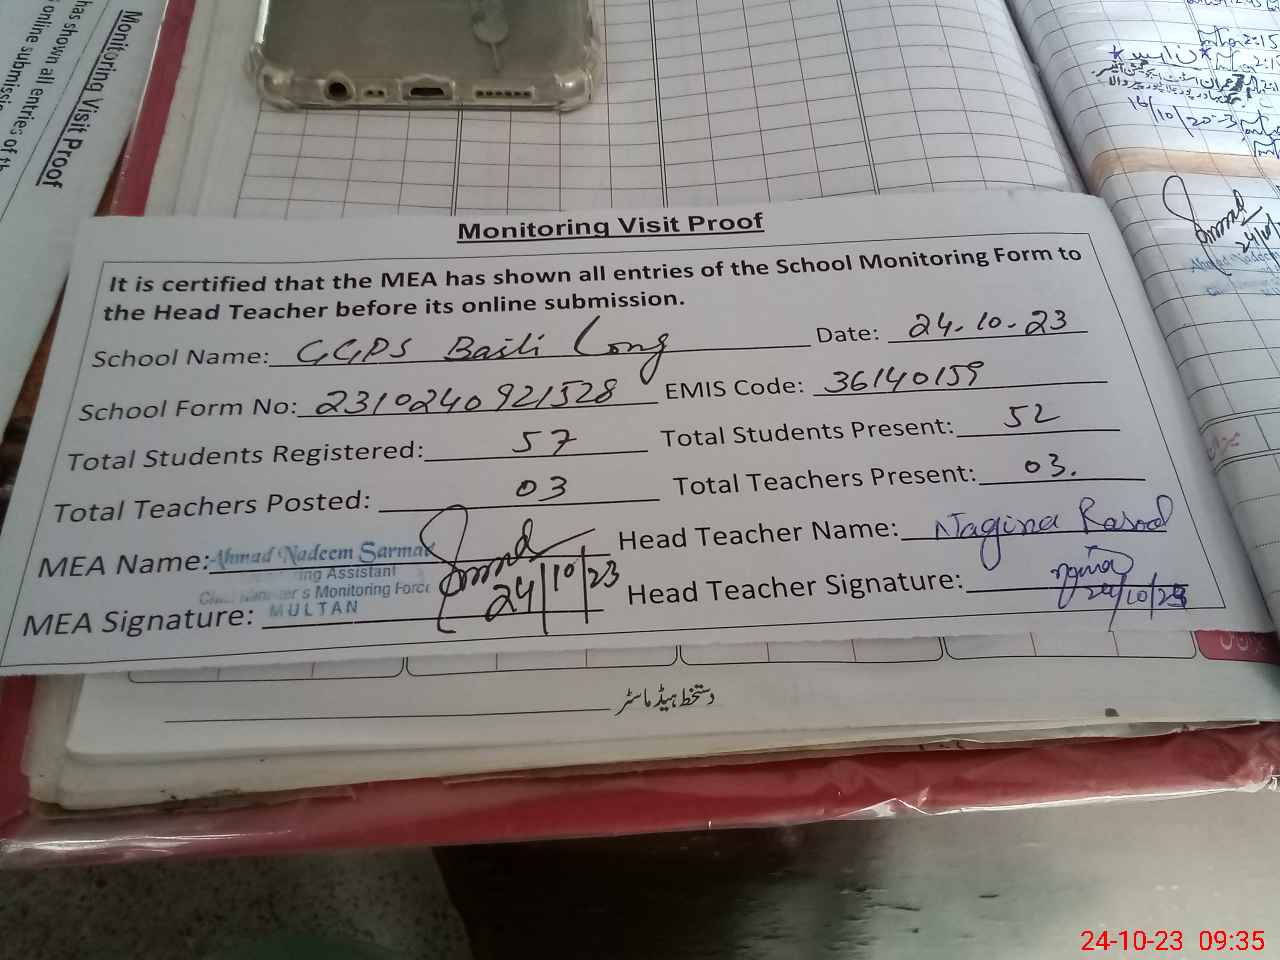 Monitoring Visit Proof
has shown all entries of th
online submissi
Monitoring Visit Proof
It is certified that the MEA has shown all entries of the School Monitoring Form to
the Head Teacher before its online submission.
School Name: GGPS Basti Long Date: 24-10-23
School Form No: 2310240921528 EMIS Code: 36140159
Total Students Registered: 57 Total Students Present: 52
Total Teachers Posted: 03 Total Teachers Present: 03.
MEA Name: Ahmad Nadeem Sarmad Head Teacher Name: Nagina Rasool
ing Assistant
's Monitoring Force
MULTAN
MEA Signature: 24/10/23 Head Teacher Signature: 24/10/23
دستخط ہیڈ ماسٹر
2:15
16/10/2023
24-10-23 09:35